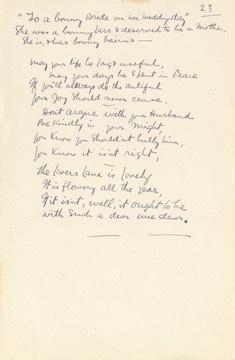 23
"To a bonny Bride on her wedding day"
She was a bonny lass & deserved to be a Mother.
She is, & has bonny bairns —
May your life be long & useful,
May your days be spent in Peace
If you'll always do the dutiful
Your Joy should never cease.
Don't argue with your Husband
Be Kindly in your Might
You Know you shouldn't bully him,
You Know it isn't right,
The lovers lane is lovely
It is flowery all the year,
If it isn't, well, it ought to be
With such a dear wee dear.